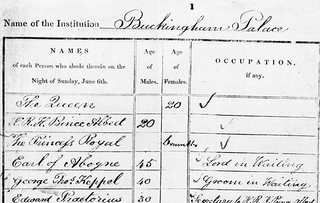 1
Name of the Institution Buckingham Palace
NAMES of each Person who abode therein on the Night of Sunday, June 6th. Age of Males. Age of Females. OCCUPATION, if any.
The Queen 20 ✓
H.R.H. Prince Albert 20 ✓
The Princess Royal 6 months ✓
Earl of Aboyne 45 Lord in Waiting
George Thos Keppel 40 Groom in Waiting
Edward Praetorius 30 Secretary to H.R.H. Prince Albert